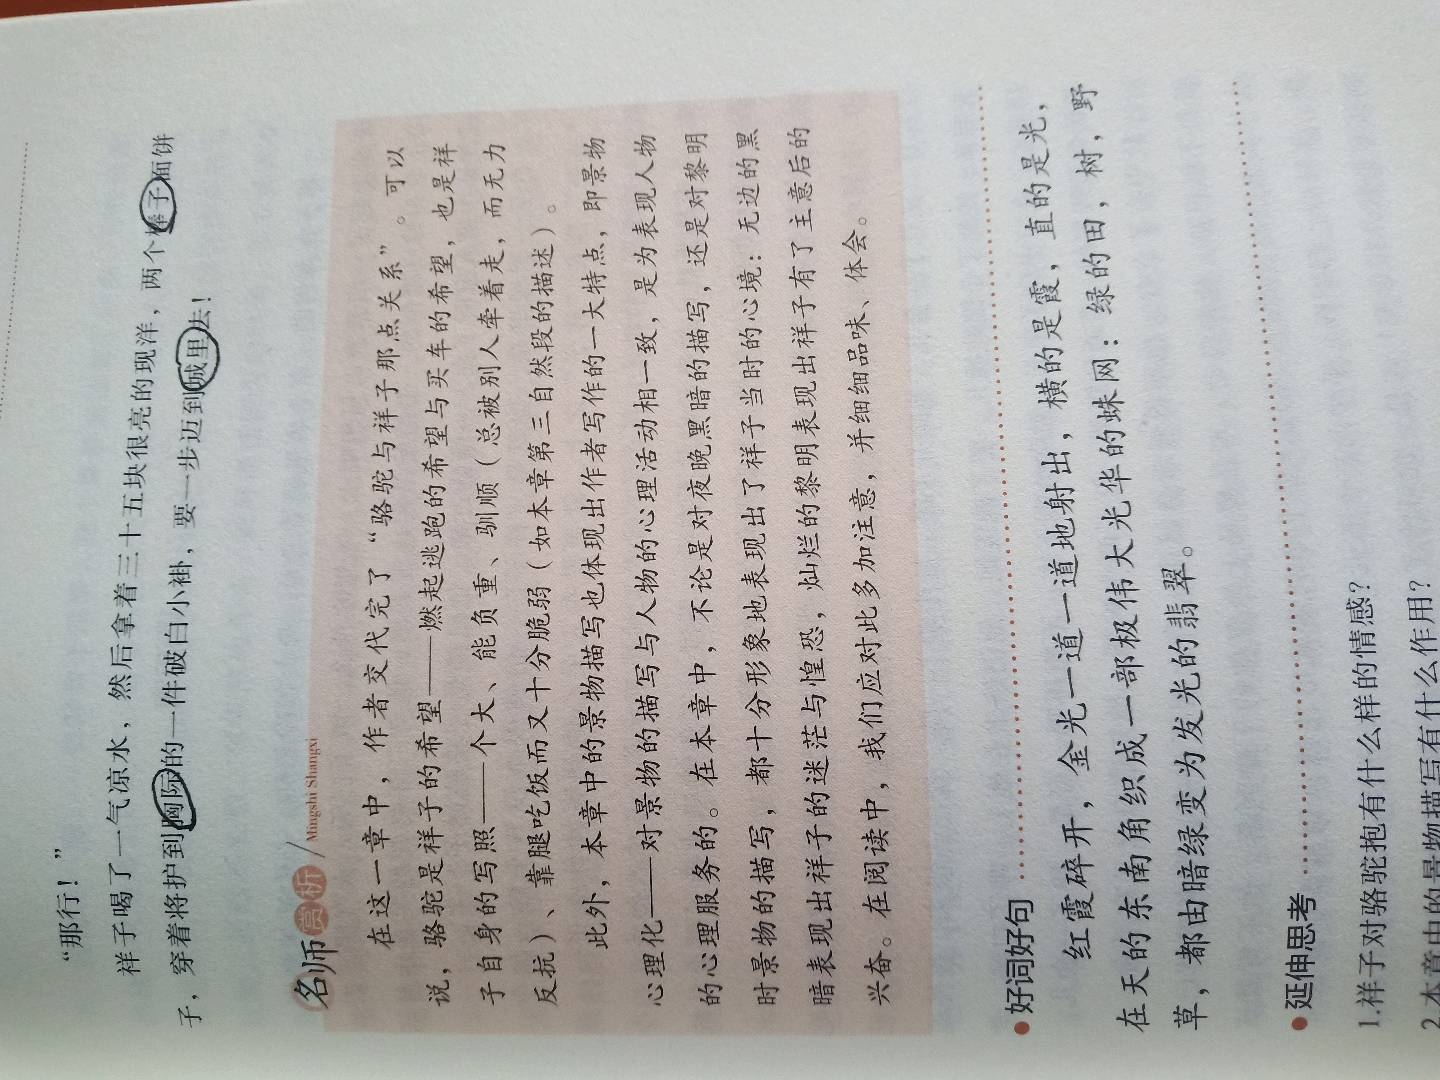 “那行！”
祥子喝了一气凉水，然后拿着三十五块很亮的现洋，两个棒子面饼
子，穿着将护到胸际的一件破白小褂，要一步迈到城里去！
名师赏析
Mingshi Shangxi
在这一章中，作者交代完了“骆驼与祥子那点关系”。可以
说，骆驼是祥子的希望——燃起逃跑的希望与买车的希望，也是祥
子自身的写照——个大、能负重、驯顺（总被别人牵着走，而无力
反抗）、靠腿吃饭而又十分脆弱（如本章第三自然段的描述）。
此外，本章中的景物描写也体现出作者写作的一大特点，即景物
心理化——对景物的描写与人物的心理活动相一致，是为表现人物
的心理服务的。在本章中，不论是对夜晚黑暗的描写，还是对黎明
时景物的描写，都十分形象地表现出了祥子当时的心境：无边的黑
暗表现出祥子的迷茫与惶恐，灿烂的黎明表现出祥子有了主意后的
兴奋。在阅读中，我们应对此多加注意，并细细品味、体会。
好词好句
红霞碎开，金光一道一道地射出，横的是霞，直的是光，
在天的东南角织成一部极伟大光华的蛛网：绿的田，树，野
草，都由暗绿变为发光的翡翠。
延伸思考
1.祥子对骆驼抱有什么样的情感？
2.本章中的景物描写有什么作用？